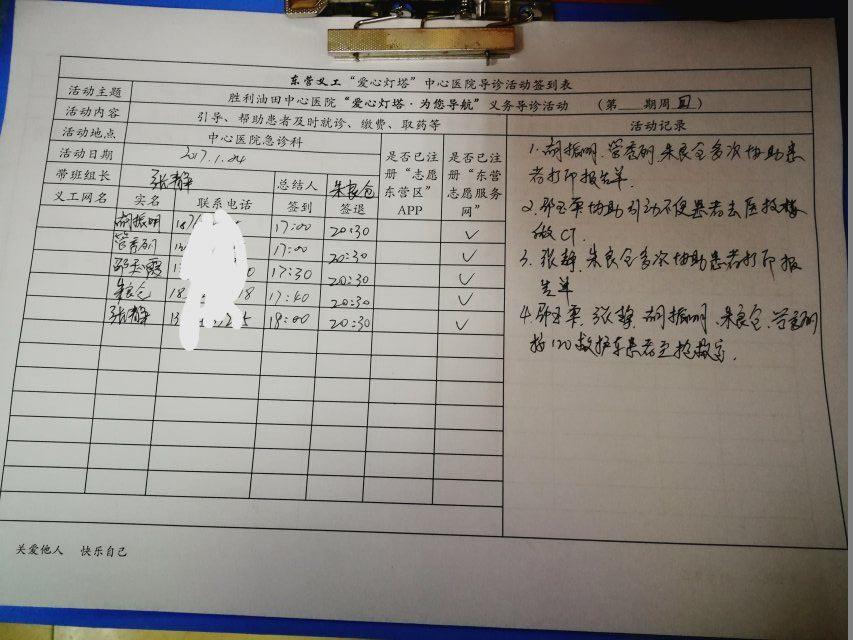 东营义工“爱心灯塔”中心医院导诊活动签到表
活动主题 胜利油田中心医院“爱心灯塔·为您导航”义务导诊活动 (第 期周四)
活动内容 引导、帮助患者及时就诊、缴费、取药等 活动记录
活动地点 中心医院急诊科
活动日期 2017.1.24
是否已注册“志愿东营区”APP
是否已注册“东营志愿服务网”
带班组长 张静 总结人 朱良仓
义工网名 实名 联系电话 签到 签退
胡振明 17:00 20:30 ✓
管秀丽 17:00 20:30
邵玉霞 17:30 20:30 ✓
朱良仓 18 18 17:40 20:30 ✓
张静 18:00 20:30 ✓
1. 胡振明、管秀丽、朱良仓多次协助患
者打印报告单.
2. 协助引动不便患者去医技楼
做CT.
3. 张静、朱良仓多次协助患者打印报
告单
4. 张静、胡振明、朱良仓、管秀丽
接120救护车患者至抢救室.
关爱他人 快乐自己